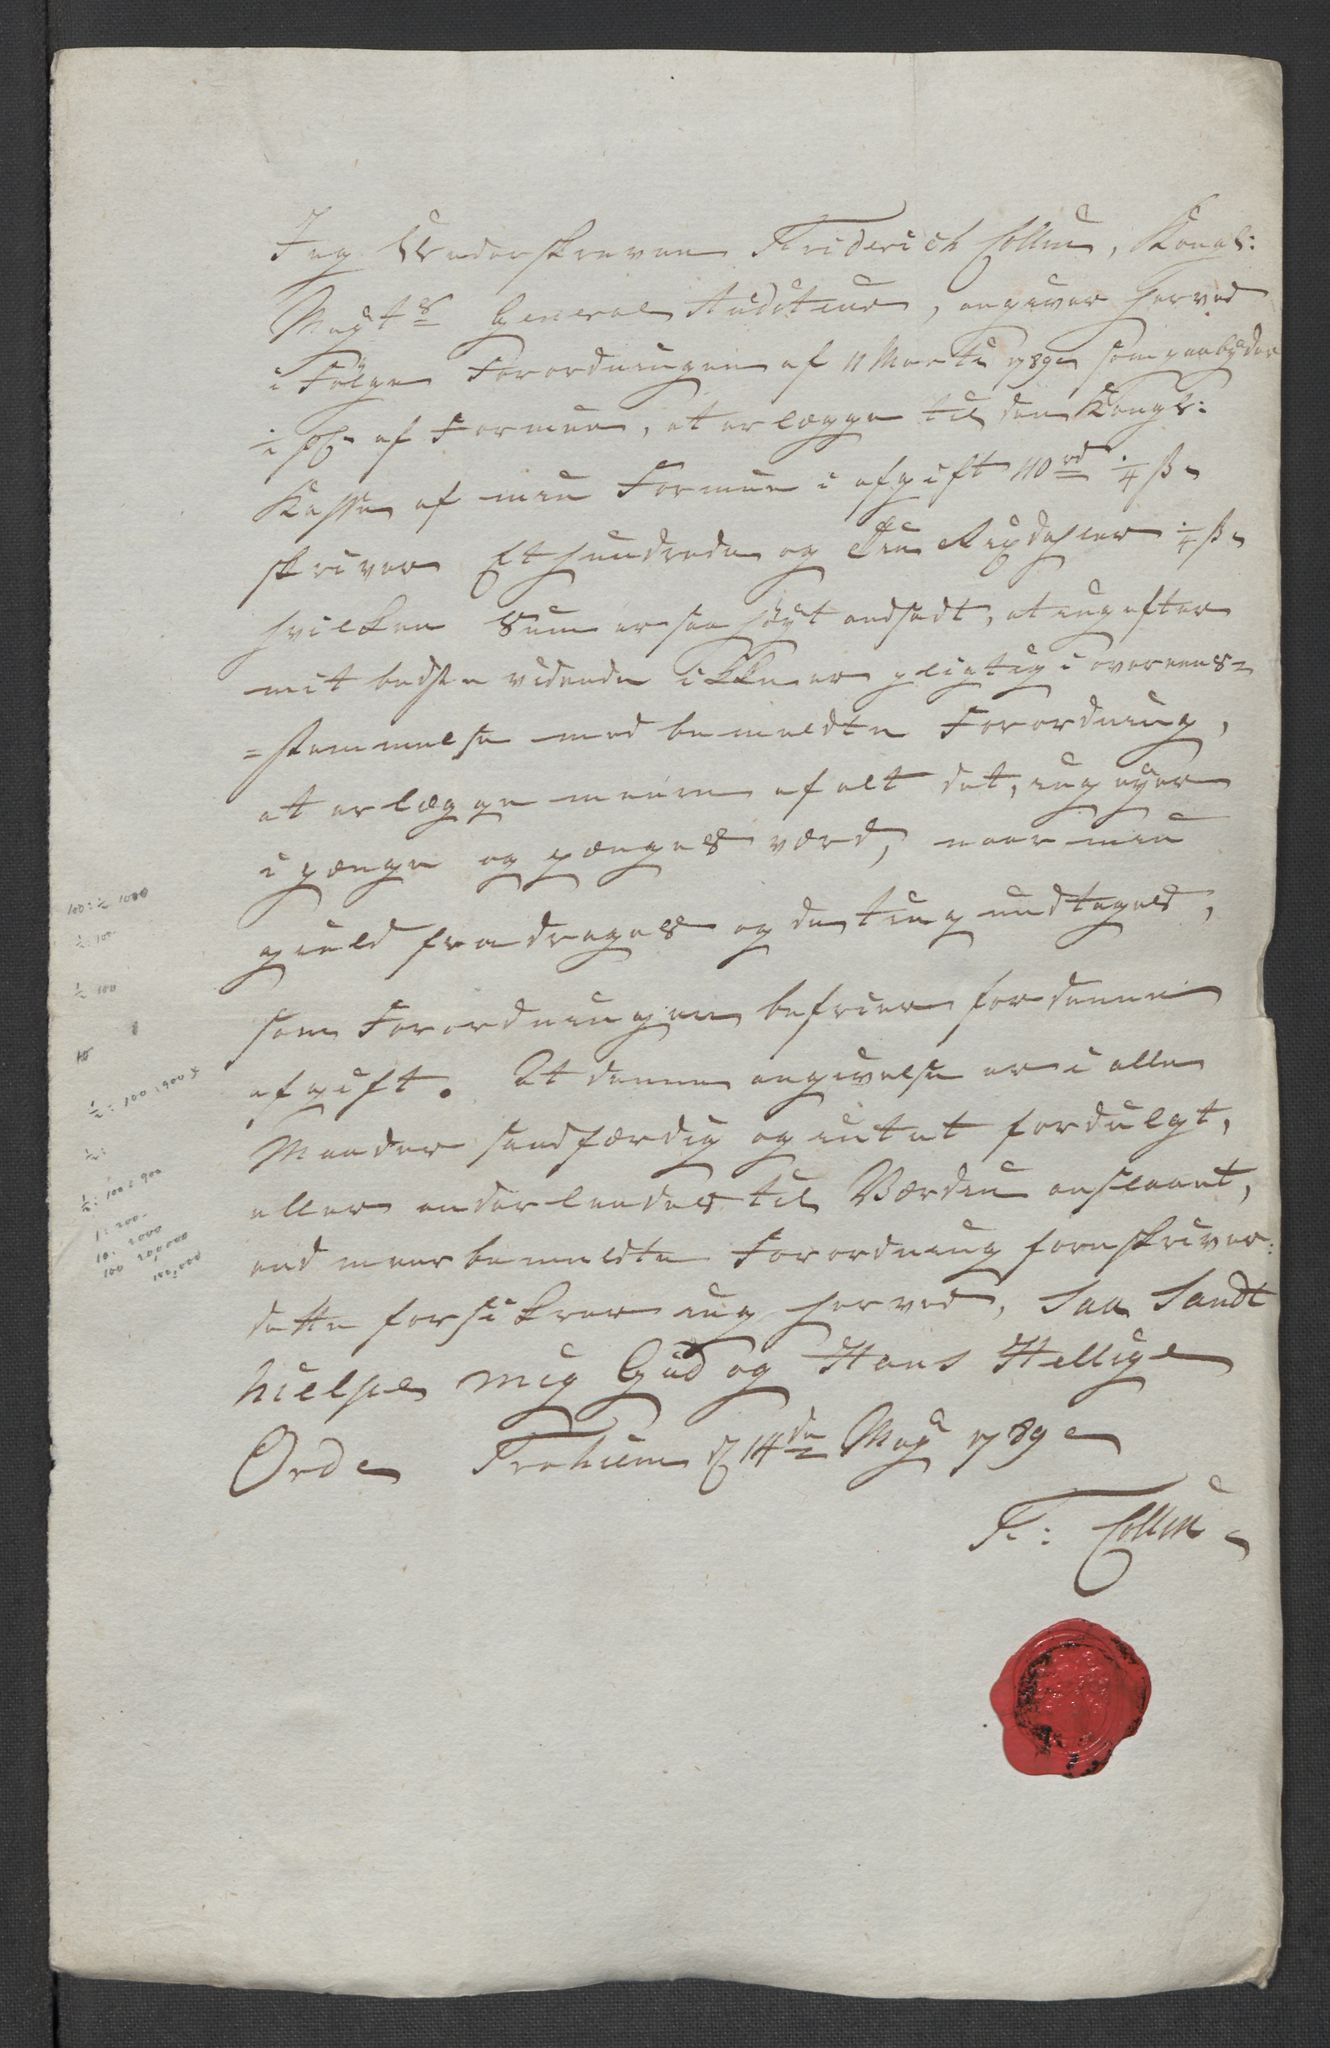 Jeg Underskreven Friderich Collin, Kongl:
Mayts General Auditeur, angiver herved
i Følge Forordningen af 11 Martii 1789 som paabyder
af Formue, at erlægge til den Kongl:
Kasse af min Formue i afgift 110 rd 1/4 ß
skriver Et hundrede og Tie Rixdahler 1/4 ß
hvilken Sum er saa høyt ansadt, at ieg efter
mit bedste vidende ikke er pligtig i overeens-
=stemmelse med bemeldte Forordning,
at erlægge meere af alt det, ieg eyer
i penge og penges værd, naar min
gield fradrages og de ting undtages,
som Forordningen befrier for denne
afgift. At denne angivelse er i alle
Maader sandfærdig og intet fordulgt,
eller anderleedes til Værdie anslaaet,
end meerbemeldte Forordning foreskriver:
dette forsikrer ieg herved, Saa Sandt
hielpe mig Gud og Hans Hellige
Ord Trohiem d 14de May 1789
F: Collin
100: 1/2 1000
1/2 100
1/2 100
10
1/2: 100
1/2:
1/2: 100: 900
1: 200
10: 2000
100 200,000
100,000